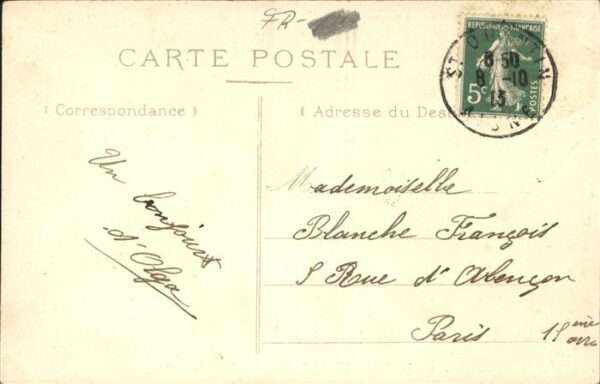 FR-
CARTE POSTALE
( Correspondance )
( Adresse du Dest
REPUBLIQUE FRANÇAISE
5c
POSTES
ST QUENTIN
8 50
8 -10
13
AISNE
Un bonjour
d'Olga
Mademoiselle
Blanche François
5 Rue d'Alençon
Paris 15ème